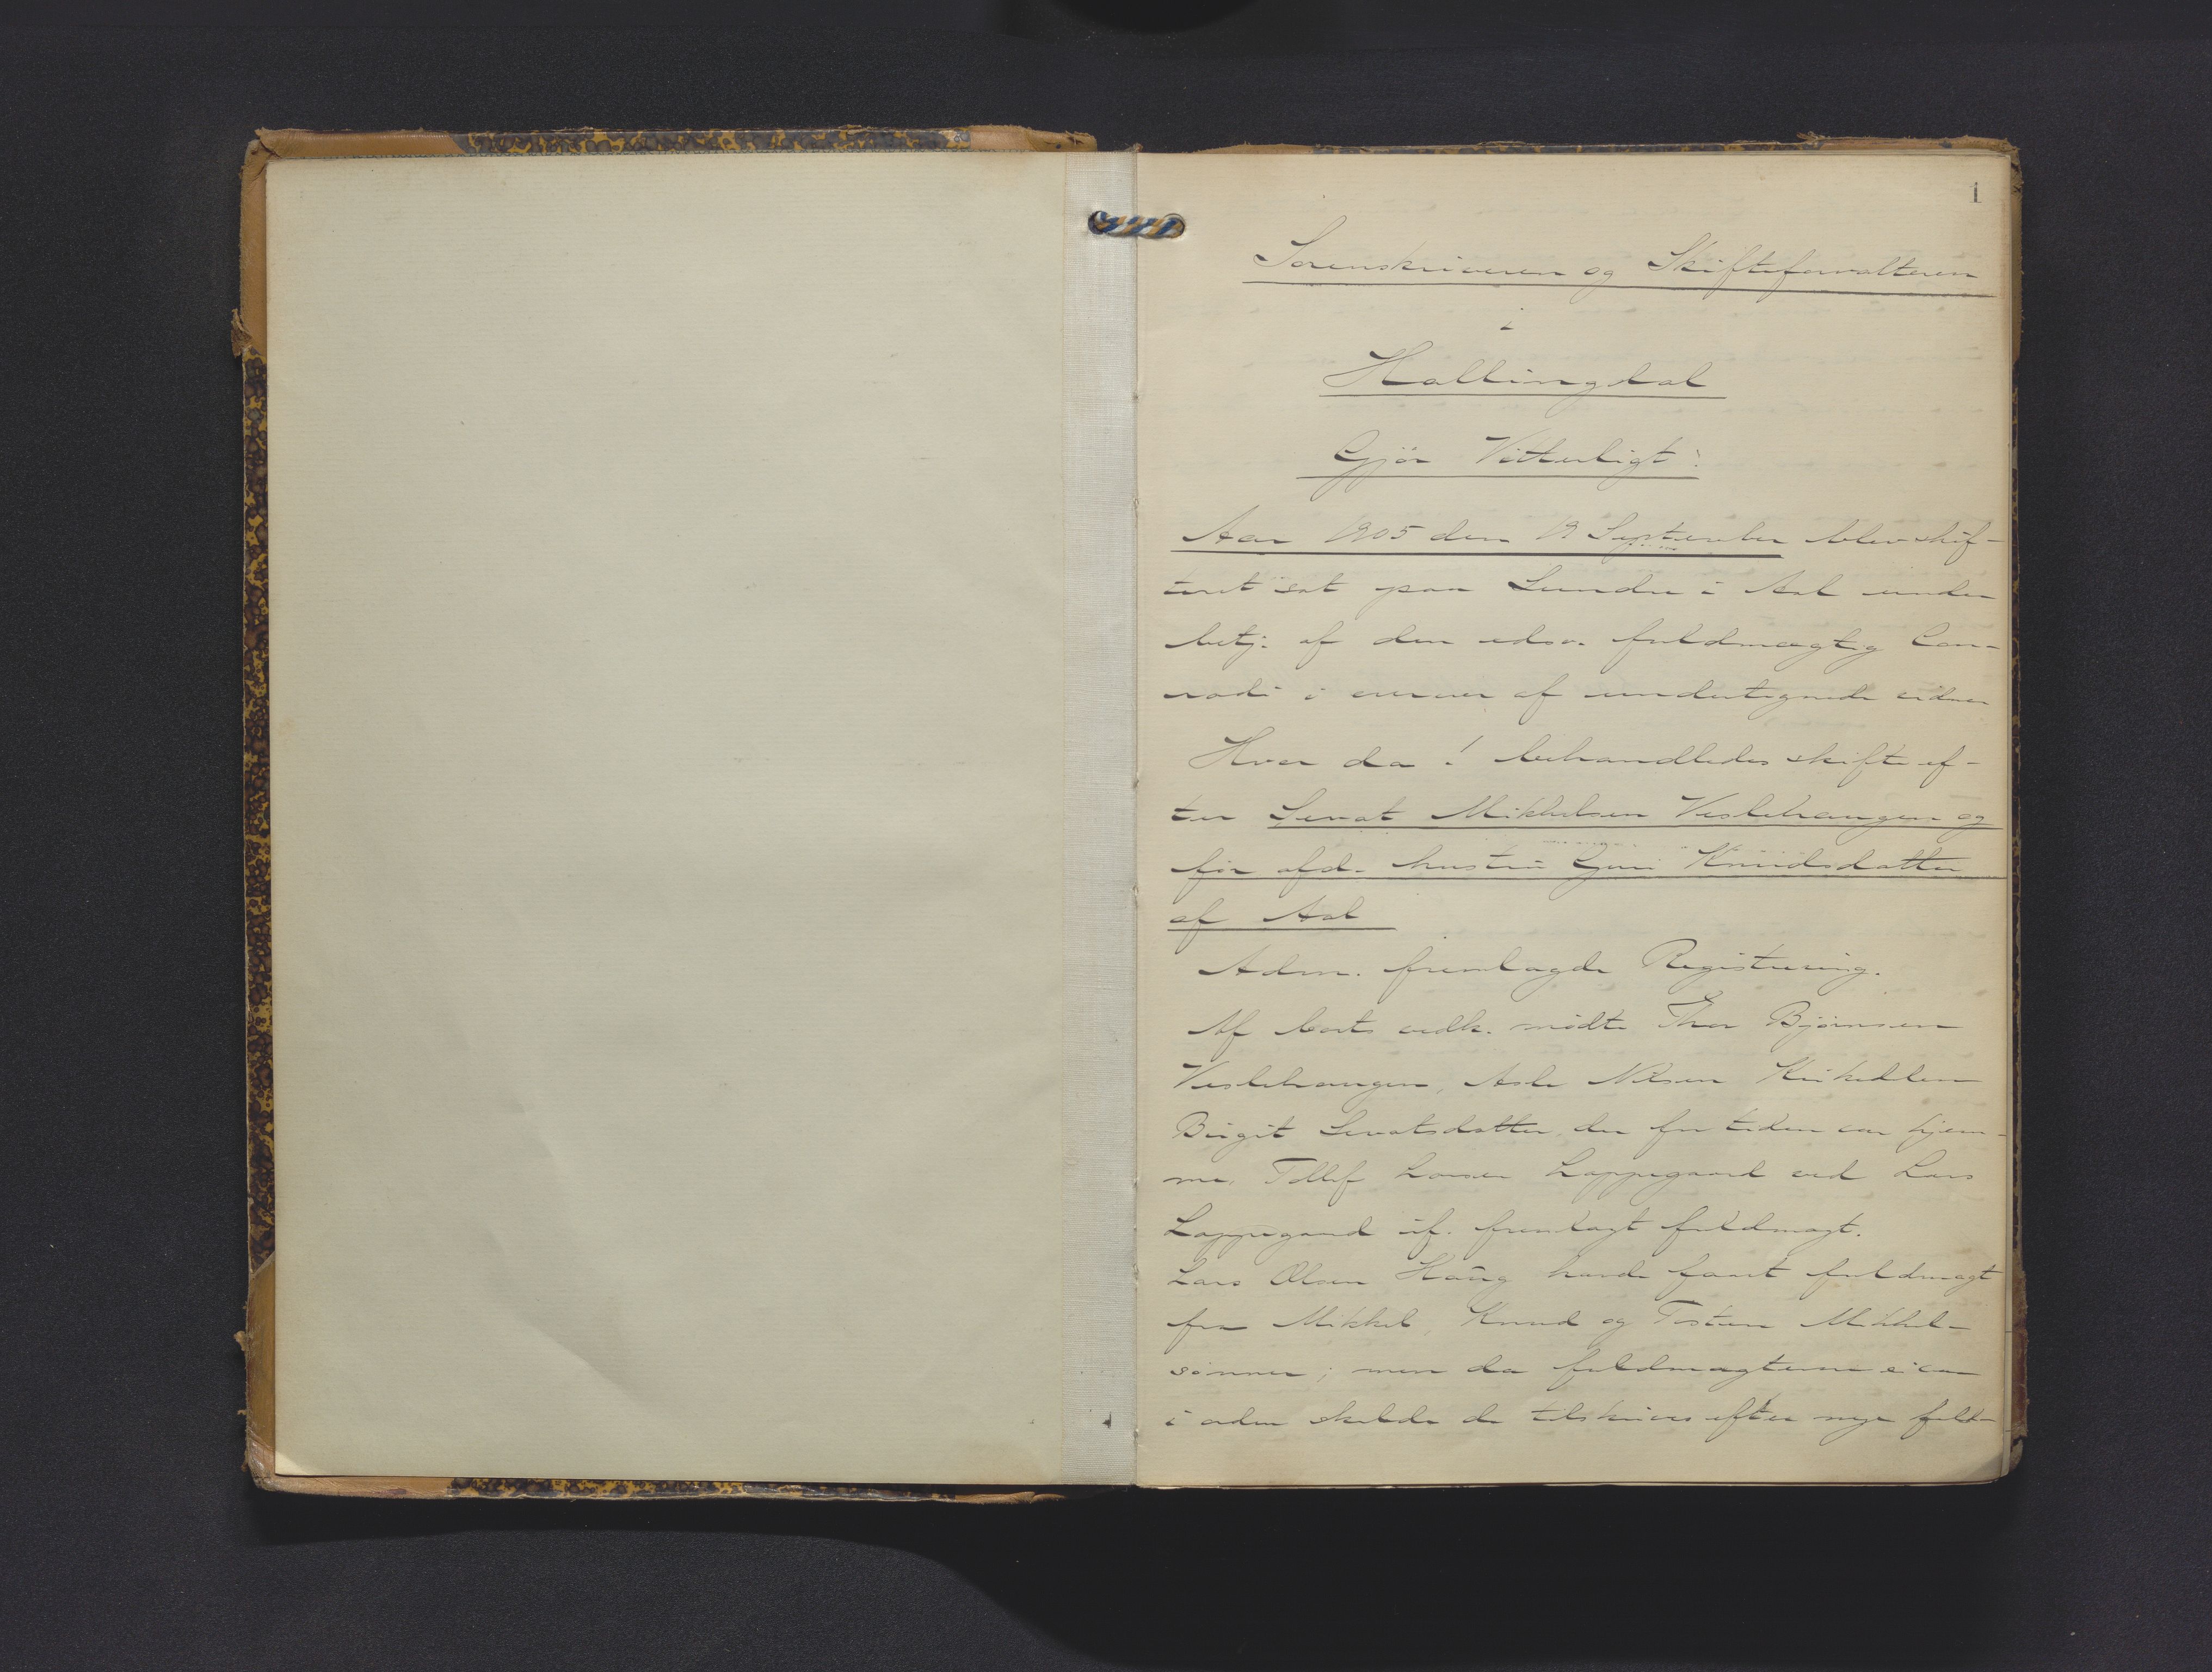 1
Sorenskriveren og Skifteforvalteren
i
Hallingdal
Gjør Vitterligt:
Aar 1905 den 19 September blev skif-
teret sat paa Sundre i Aal under
betj. af den edsv. fuldmægtig Con-
radi i nærvær af undertegnede vidner
Hvor da! behandledes skifte ef-
ter Sevat Mikkelsen Veslehaugen og
før afd. hustru Guri Knudsdatter
af Aal
Adm. fremlagde Registrering.
Af boets vedk. mødte Thor Bjørnsen
Veslehaugen, Asle Nilsen
Birgit Sevatsdatter der for tiden var hjem-
me, Tollef Larsen Loppegaard ved Lars
Loppegaard if. fremlagt fuldmagt.
Lars Olsen Haug havde faaet fuldmagt
fra Mikkel, Knud og Tosten Mikkel-
sønner; men da fuldmagterne ei var
i orden skulde de tilskrives efter nye fuld-